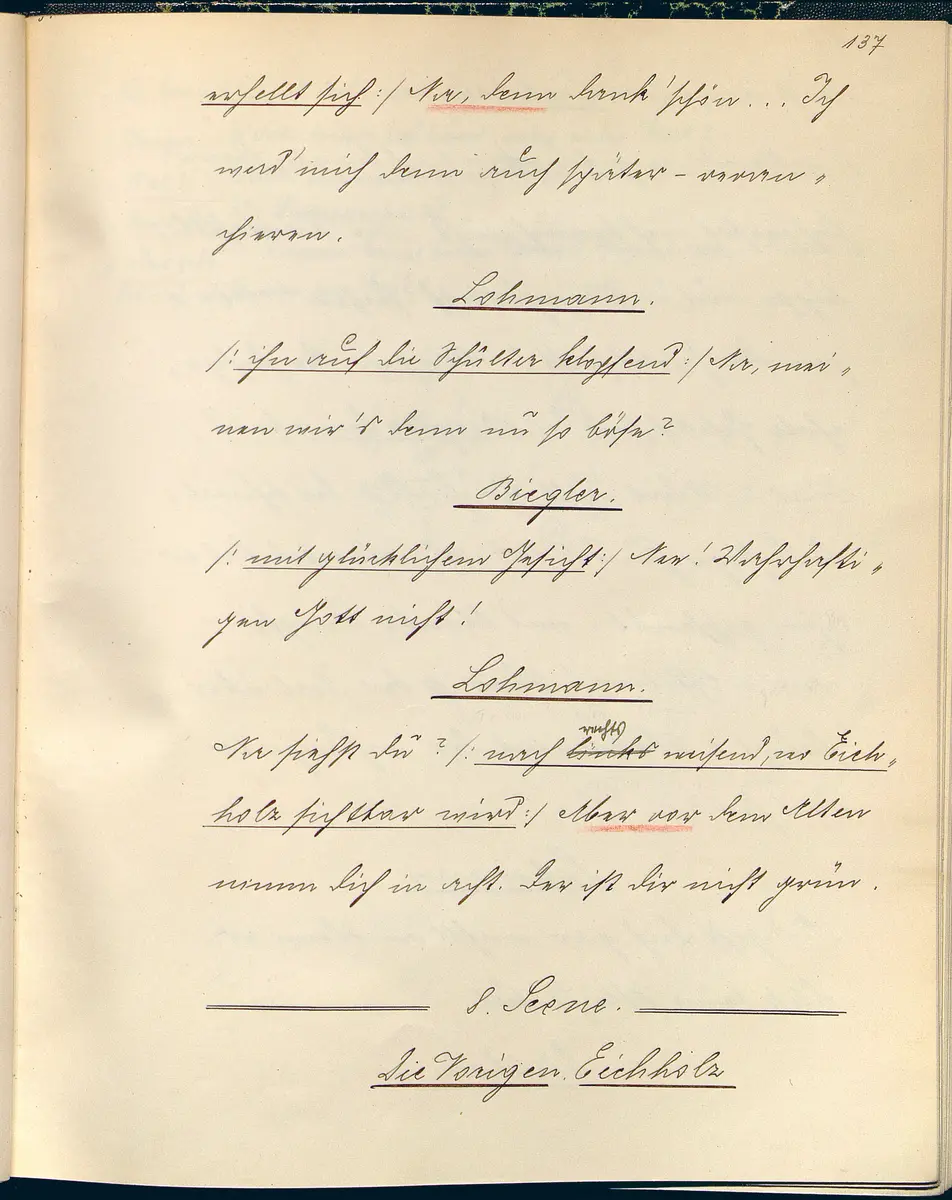 137
erhellt sich :/ Na, denn dank' schön ... Ich
werd' mich denn auch später – revan-
chieren.
Lohmann.
/: ihn auf die Schulter klopfend :/ Na, mei-
nen wir's denn nu so böse?
Biegler.
/: mit glücklichem Gesicht :/ Nee! Wahrhafti-
gen Gott nicht!
Lohmann.
rechts
Na siehst du? /: nach links weisend, wo Eich-
holz sichtbar wird :/ Aber vor dem Alten
nimm dich in acht. Der ist dir nicht grün.
8. Scene.
Die Vorigen. Eichholz